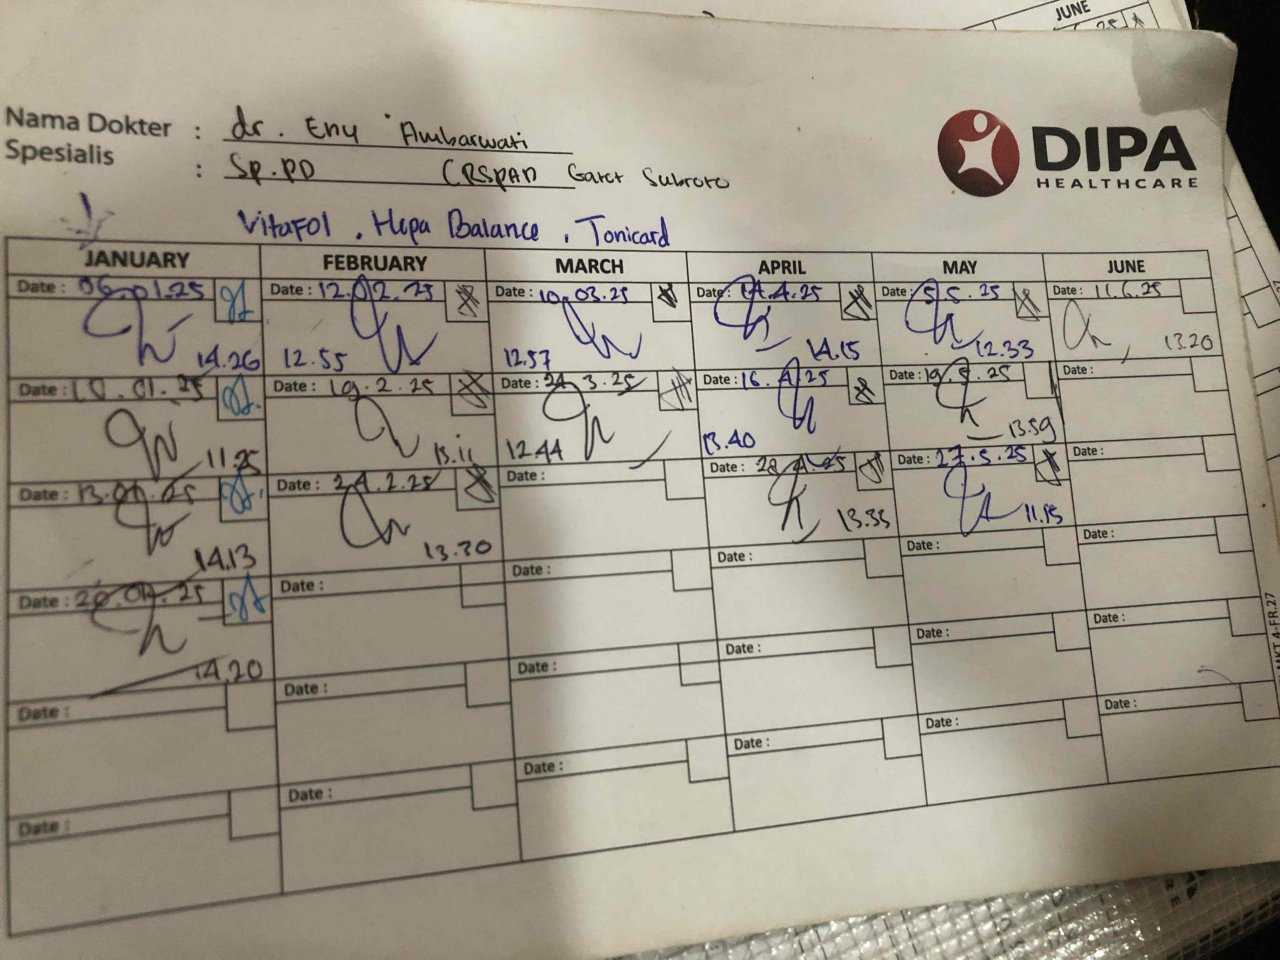 JUNE
Nama Dokter : dr. Eny Ambarwati
Spesialis : Sp.PD (RSPAD Gatot Subroto
DIPA
HEALTHCARE
Vitafol, Hepa Balance, Tonicard
JANUARY FEBRUARY MARCH APRIL MAY JUNE
Date : 06.01.25 Date : 12.02.25 Date : 10.03.25 Date : 14.4.25 Date : 5.5.25 Date : 11.6.25
14.26 12.55 12.57 14.15 12.33 13.20
Date : 10.01.25 Date : 19.2.25 Date : 24.3.25 Date : 16.4.25 Date : 19.5.25 Date :
11.25 13.11 12.44 13.40 13.59
Date : 13.01.25 Date : 24.2.25 Date : Date : 28.4.25 Date : 27.5.25 Date :
14.13 13.30 13.35 11.15
Date : 20.01.25 Date : Date : Date : Date : Date :
14.20
Date : Date : Date : Date : Date : Date :
Date : Date : Date : Date : Date : Date :